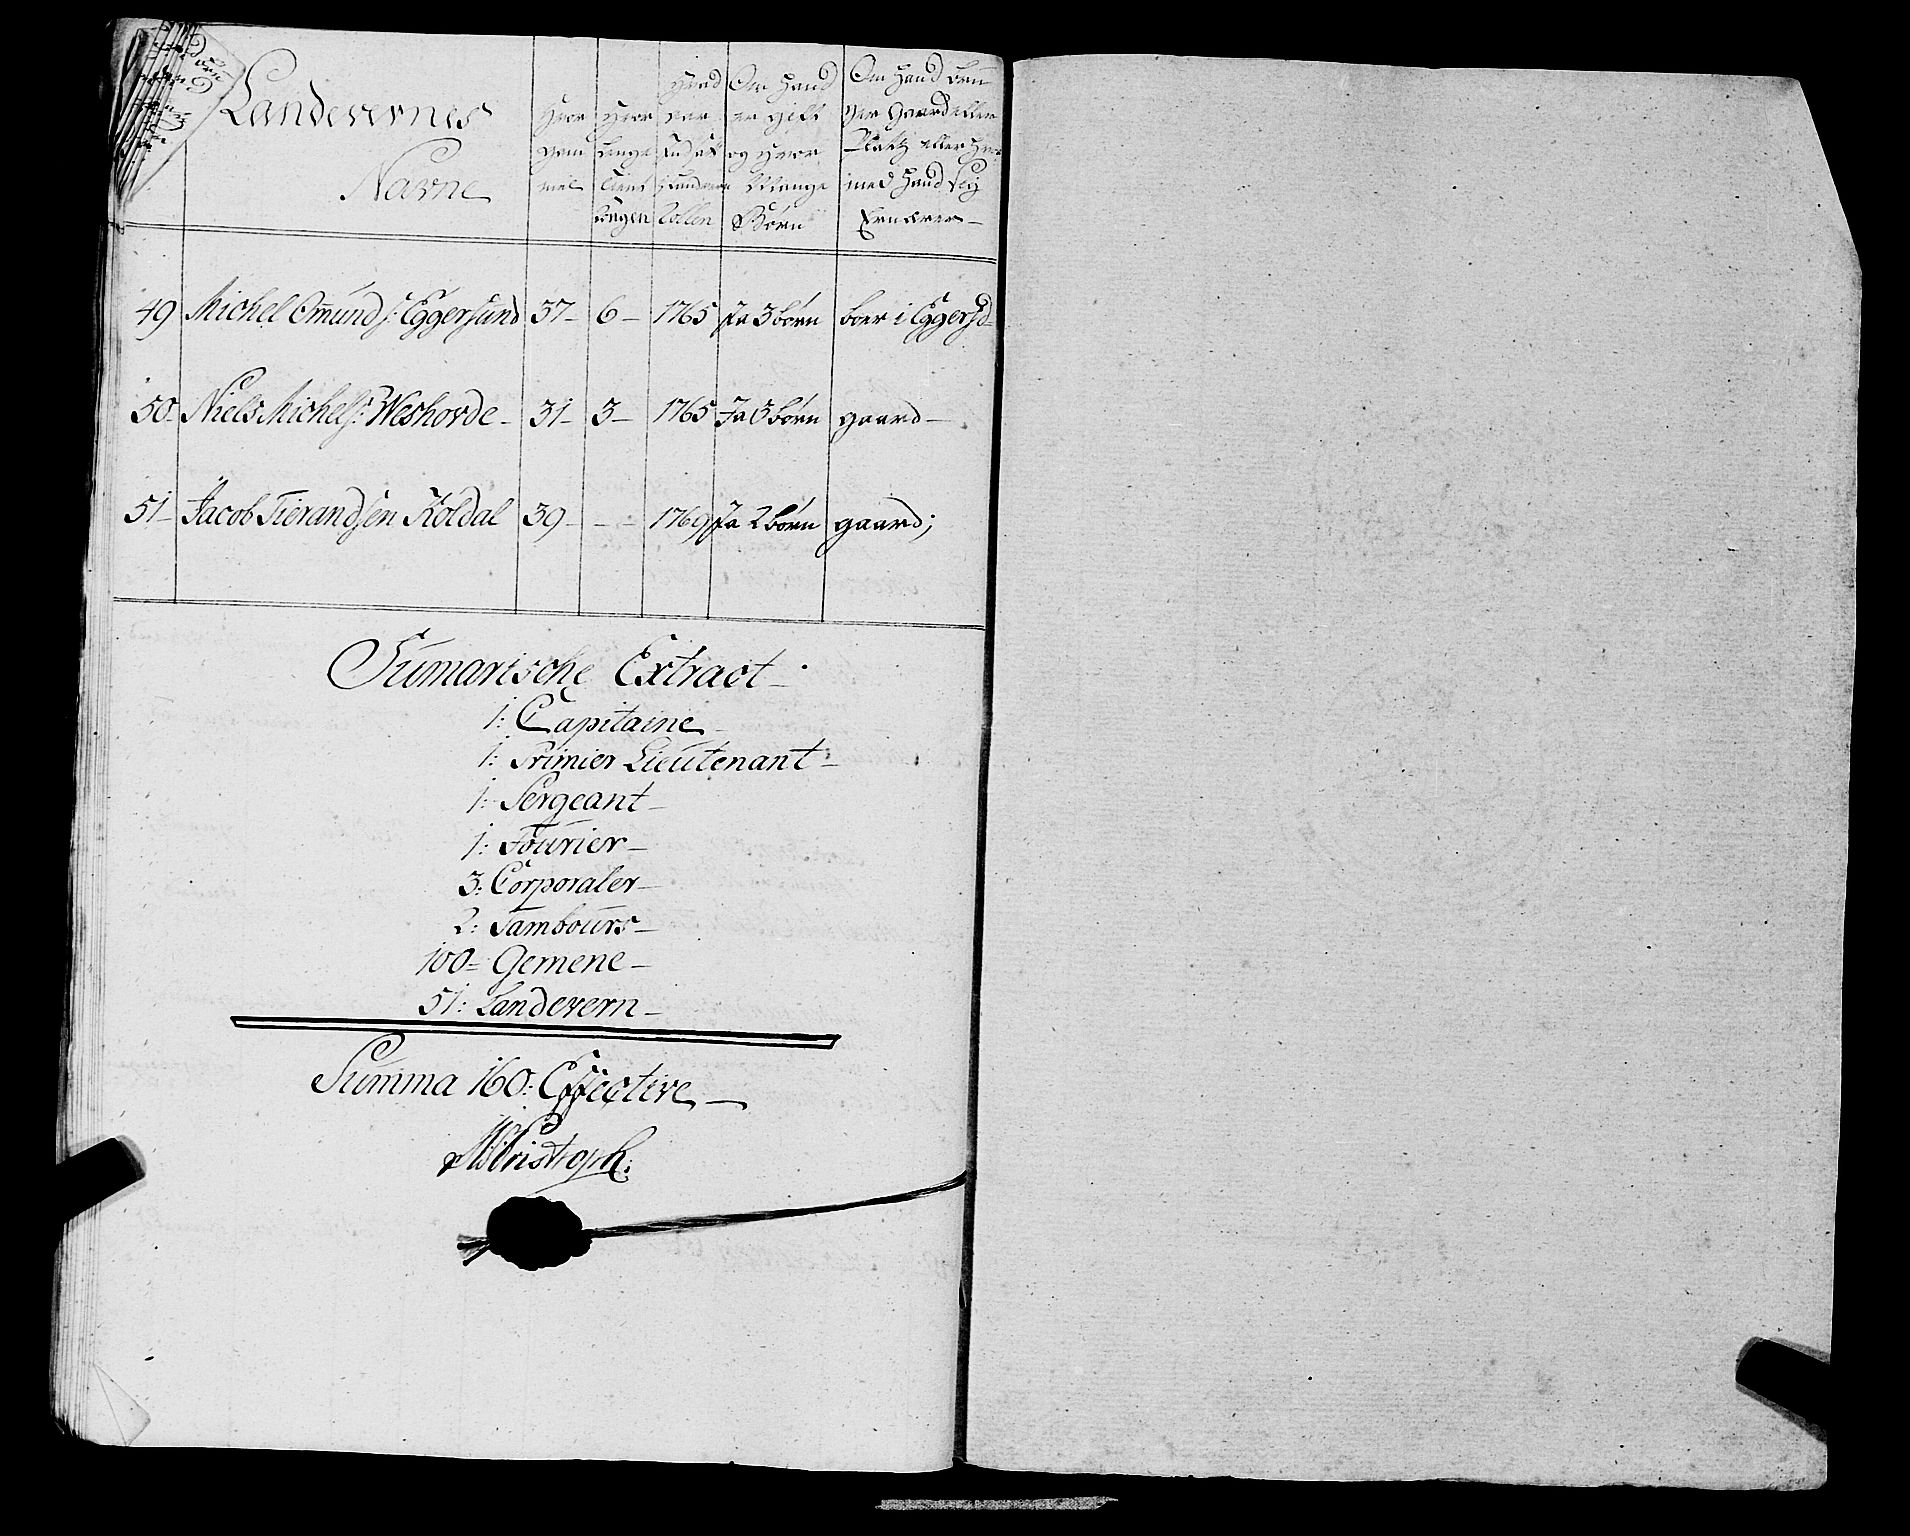 Landevernes
Navne
Hvor
gam
mel
Hvor
lenge
tient
Kongen
Hvad
aar
Indsat
i Landværn
Rollen
Om Hand
er gift
og Hvor
Mange
Børn
Om Hand brü
ger Gaard eller
Platz eller Hvor
med Hand sig
Ernærer
49 Michel Omund s: Eggersund 37 6 1765 Ja 3 børn boer i Eggersd
50 Niels Michels: Weshovde 31 3 1765 Ja 3 børn gaard
51 Jacob Tierandsen Koldal 39 - - 1769 Ja 2 børn gaard;
Sumarische Extract
1: Capitaine
1: Primier Lieutenant
1: Sergeant
1: Fourier
3: Corporaler
2: Tambours
100= Gemene
51: Landevern
Summa 160: Effective